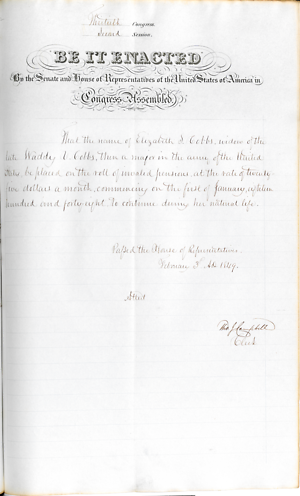 Thirtieth Congress.
Second Session.
BE IT ENACTED
By the Senate and House of Representatives of the United States of America in
Congress Assembled,
That the name of Elizabeth S. Cobbs, widow of the
late Waddy V. Cobbs, then a major in the army of the United
States, be placed on the roll of invalid pensions, at the rate of twenty-
five dollars a month, commencing on the first of January, eighteen
hundred and forty eight to continue during her natural life.
Passed the House of Representatives
February 1849.
Attest
Tho J Campbell
Clerk